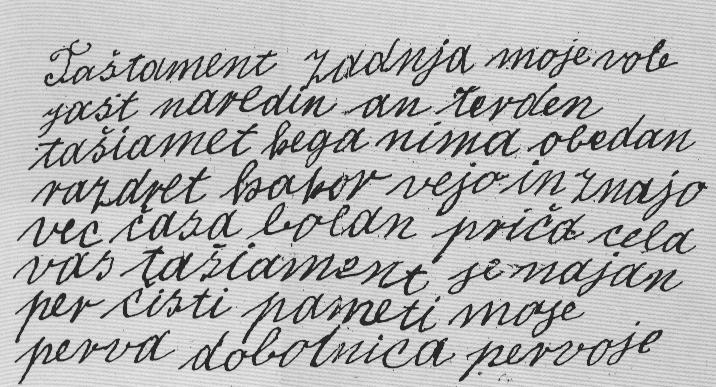 Taštament zadnja moje vole
jašt naredin an terden
tašiamet kega nima obedan
razdret kakor vejo in znajo
vec časa bolan priča cela
vas tašiament je najan
per čisti pameti moje
perva dobotnica pervoje